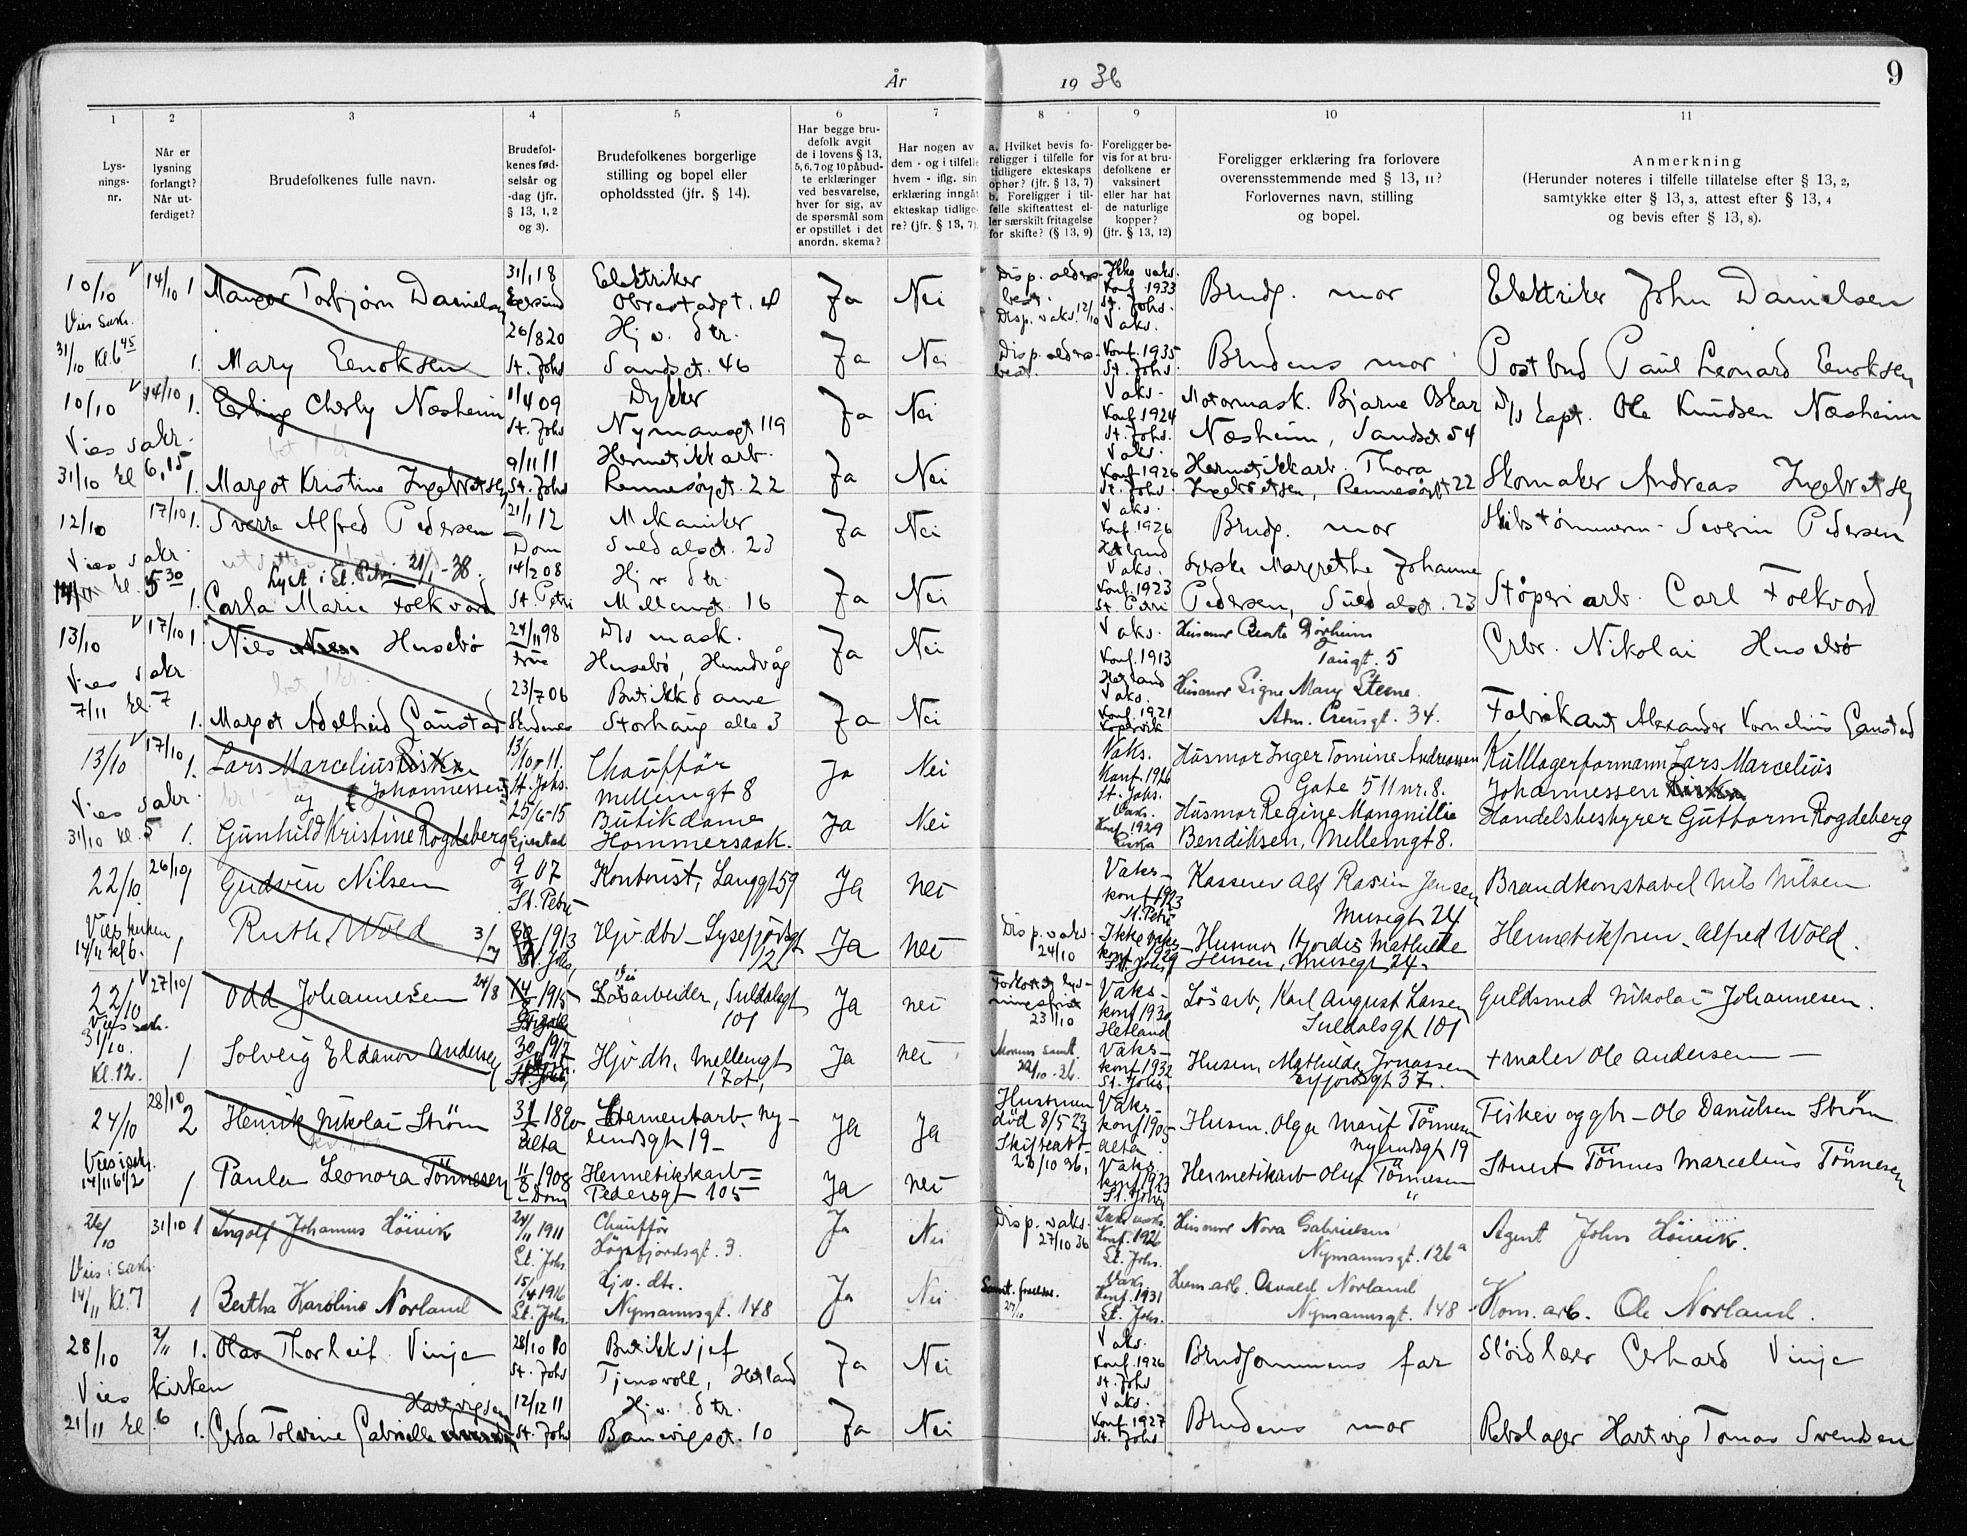 År 1936
9
1 2 3 4 5 6 7 8 9 10 11
Lys-
nings-
nr.
Når er
lysning
forlangt?
Når ut-
ferdiget?
Brudefolkenes fulle navn.
Brudefol-
kenes fød-
selsår og
-dag (jfr.
§ 13, 1, 2
og 3).
Brudefolkenes borgerlige
stilling og bopel eller
opholdssted (jfr. § 14).
Har begge bru-
defolk avgit
de i lovens § 13,
5, 6, 7 og 10 påbud-
te erklæringer
ved besvarelse,
hver for sig, av
de spørsmål som
er opstillet i det
anordn. skema?
Har nogen av
dem - og i tilfelle
hvem - iflg. sin
erklæring inngåt
ekteskap tidlige-
re? (jfr. § 13, 7)
a. Hvilket bevis fo-
religger i tilfelle for
tidligere ekteskaps
ophør? (jfr. § 13, 7)
b. Foreligger i til-
felle skifteattest el-
ler særskilt fritagelse
for skifte? (§ 13, 9)
Foreligger be-
vis for at bru-
defolkene er
vaksinert
eller har hat
de naturlige
kopper?
(jfr. § 13, 12)
Foreligger erklæring fra forlovere
overensstemmende med § 13, 11?
Forlovernes navn, stilling
og bopel.
Anmerkning
(Herunder noteres i tilfelle tillatelse efter § 13, 2,
samtykke efter § 13, 3, attest efter § 13, 4
og bevis efter § 13, 8).
10/10 14/10 1 Torbjørn Danielsen 31/1 18 Egersund Elektriker Ja Nei Disp. alders- best. Disp. vaks. 12/10 Ikke vaks. Konf. 1933 St. Johs. Brudg. mor Elektriker John Danielsen
Vies sakr. 31/10 Kl. 6 45 1. Mary Enoksen 26/8 20 St. Johs Hj v. dtr. Sandsgt. 46 Ja Nei Disp. alders- best. Vaks. Konf. 1935 St. Johs. Brudens mor Postbud Paul Leonard Enoksen
10/10 14/10 1. Erling Cherly Næsheim 11/4 09 St. Johs Dykker Nymansgt 119 Ja Nei Vaks. Konf. 1924 St. Johs. Motormask. Bjarne Oskar Næsheim, Sandsgt 54 D/s Capt. Ole Knudsen Næsheim
Vies sakr. 31/10 Kl 6,15 1. Margot Kristine Ingebretsen 9/11 11 St. Johs Hermetikkarb. Rennesøygt. 22 Ja Nei Vaks. Konf. 1926 St. Johs. Hermetikkarb. Thora Ingebretsen, Rennesøygt 22 Skomaker Andreas Ingebretsen
12/10 17/10 1. Sverre Alfred Pedersen 21/1 12 Dom Mekaniker Suldalsgt. 23 Ja Nei Vaks. Konf. 1926 Hetland Brudg. mor Skibstømmerm. Severin Pedersen
Lyst i St. Petri 21/1-38.
Vies sakr. Kl. 5 30 1. Carla Marie Folkvord 14/2 08 St. Petri Hj v. dtr. Mellemgt. 16 Ja Nei Vaks. Konf. 1923 St. Petri Syerske Margrethe Johanne Pedersen, Suldalsgt. 23 Støperiarb. Carl Folkvord
13/10 17/10 1 Nils Husebø 24/11 98 D/s mask. Husebø, Hundvåg Ja Nei Vaks. Konf. 1913 Hetland Husmor Beate Tangt. 5 Grbr. Nikolai Husebø
Vies sakr. 7/11 Kl. 7 1. Margot Adelheid Ganstad 23/7 06 Butikkdame Storhaug alle 3 Ja Nei Vaks. Konf. 1921 Kopervik Husmor Signe Mary Steene Adm. Cruisgt. 34. Fabrikant Alexander Kornelius Ganstad
13/10 17/10 1. Lars Marcelius Johannessen 13/10-11. St. Johs. Chauffør Mellemgt 8 Ja Nei Vaks. Konf. 1926 St. Johs. Husmor Inger Tomine Andreassen Gate 511 nr. 8. Kullagerformann Lars Marcelius Johannessen
og
Vies sakr. 31/10 Kl. 5 1. Gunhild Kristine Rogdeberg 25/6-15 Butikdame Hommersaak. Ja Nei Vaks. Konf 1929 Husmor Regine Magnillie Bendiksen, Mellemgt 8. Handelsbestyrer Guttorm Rogdeberg
22/10 26/10 1 Gudvin Nilsen 9/9 07 St. Petri Kontorist, Langgt 59 Ja nei Vaks- konf 1923 St. Petri Kasserer Alf Rasin Jensen Musegt 24 Brandkonstabel Nils Nilsen
Vies kirken 14/11 kl 6. 1 Ruth Wold 3/7 1913 St. Johs, Hjv. dtr- Lysefjordsgt 12 Ja nei Disp. vaks. 24/10 Ikke vaks konf 1929 St. Johs Husmor Hjordis Mathilde Jensen, Musegt 24. Hermetikfren. Alfred Wold.
22/10 27/10 1 Odd Johannesen 24/8 1915 Løsarbeider, Suldalsgt 101 Ja nei Forkortet lys- ningsfrist 23/10 Vaks- konf 1930 Hetland Løsarb, Karl August Larsen Suldalsgt 101 Guldsmed Nikolai Johannesen.
Vies sakr. 31/10. Kl. 12. 1 Solveig Eldanor Andersen 30 1917 Hjv. dtr, Mellemgt 17 Ja nei Morens samt. 22/10-36. Vaks- konf 1932 St. Johs. Husm. Mathilde Jonassen Ryfjordsgt 37. + maler Ole Andersen —
24/10 28/10 2 Henrik Nikolai Strøm 31/ 1890 Alta Sementarb. Ny- lundsgt 19 Ja Ja Hustruen død 8/5 23 Skifteatt- 28/10 36, Vaks- konf 1905 Alta Husm. Olga Marie Tönnesen Nylundsgt 19 Fisker og gbr- Ole Danielsen Strøm
Vies i sakr. 14/11 6 1/2 1 Paula Leonora Tönnesen 11/8 1908 Dom Hermetikkarb- Pedersgt 105 Ja nei Vaks- konf 1923 St. Johs Hermetikarb Oluf Tönnesen " Stuert Tönnes Marcelius Tönnesen
26/10 31/10 1 Ingolf Johannes Höivik 24/11 1911 St. Johs. Chauffør Høgsfjordsgt. 3. Ja Nei Disp. vaks. 27/10 36 Ikke vaks. Konf. 1926 St. Johs. Husmor Nora Gabrielsen Nymannsgt. 126a Agent John Höivik.
Vies i sakr. 14/11 Kl. 7 1 Bertha Karoline Norland 15/4 1916 St. Johs. Hjv. dtr. Nymannsgt. 148 Ja Nei Samt. 27/10 Vaks. Konf. 1931 St. Johs. Herm. arb. Osvald Norland Nymannsgt. 148 Hom. arb. Ole Norland.
28/10 2/11 1. Olav Thorleif Vinje 28/10 10 St. Johs Butikksjef Tjensvoll, Hetland Ja Nei Vaks. Konf. 1926 St. Johs Brudgommens far Sløidlærer Gerhard Vinje
Vies kirken 21/11 Kl. 6 1. Gerda Tolvine Gabrielle Hartvigsen 12/12 11 St. Johs Hj v. dtr. Banevigsgt. 10 Ja Nei Vaks. Konf. 1927 St. Johs Brudens mor Rebslager Hartvig Tomas Svendsen